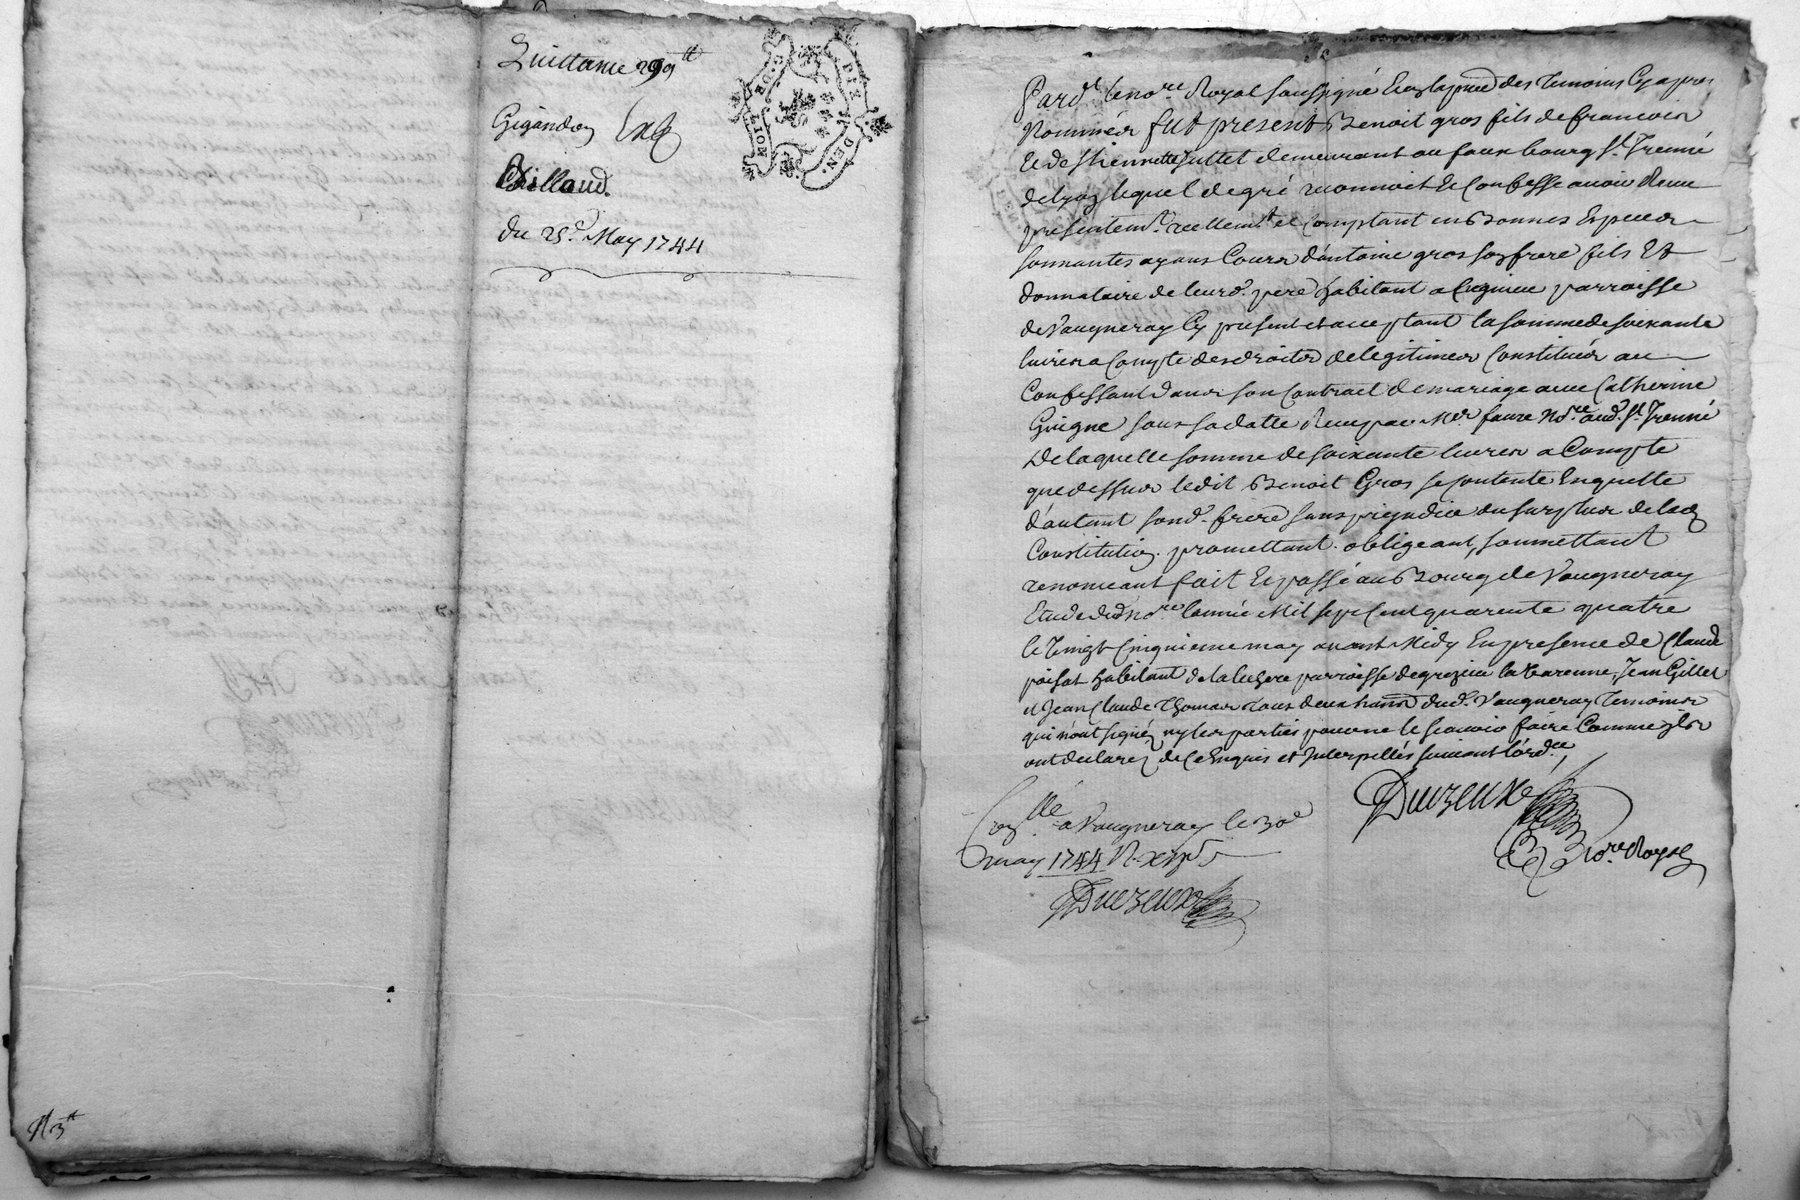 Quittance 299tt
Gigandon
Chilland.
du 25e. May 1744
G. DE LION
DIX DEN.
N 3tt
Pard.t le no.re Royal soussigné Et en la presence des Temoins Cy apres
Nommés fut present Benoit gros fils de francois
Et de Etiennette Juttet demeurant au faux bourg St. Irenné
de Lyon lequel de gré reconnoit Et Confesse avoir Receu
presentem.t reellem.t et Comptant en Bonnes Especes
sonnantes ayans Cours d'antoine gros son frere fils Et
donnataire de leurd. pere habitant a parroisse
de Vaugneray Cy present et acceptant la somme de soixante
livres a Compte des droits de legitimes Constitués au
Confessant dans son Contract de mariage avec Catherine
Guigne sous sa datte Receu par Me. faure No.re aud. St. Irenné
De laquelle somme de soixante livres a Compte
que dessus ledit Benoit Gros se Contente En quitte
d'autant sond. frere sans prejudice du surplus de lad.
Constitution. promettant. obligeant, soumettant
renonceant fait Et passé au Bourg de Vaugneray
Etude dud. no.re L'année Mil sept Cent quarente quatre
le Vingt Cinquieme may avant Midy En presence de Claude
poisat habitant de la parroisse de grezieu la Varenne, Jean Gillet
et Jean Claude Thomas tous deux dud. Vaugneray Temoins
qui n'ont signéz ny les parties pour ne le scavoir faire Comme ils
ont declaréz de Ce Enquis et Interpellés suivant l'ord.ce,
Duvzeux
No.re Royal
Con.llé a Vaugneray le 30e
may 1744 R.
Duvzeux